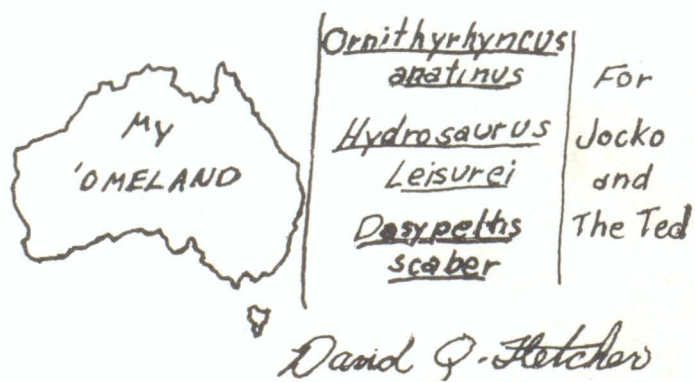 My
'OMELAND
Ornithyrhyncus
anatinus
Hydrosaurus
Leisurei
Dasypeltis
scaber
For
Jocko
and
The Ted
David Q. Fletcher